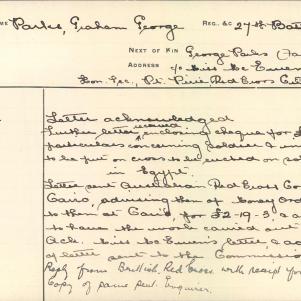 ME Parks, Graham George
REG. &C 27th Bat
NEXT OF KIN George Parks (Fa
ADDRESS c/o Miss McEwen
Hon. Sec, Pt. Pirie Red Cross
Letter acknowledged
Further letter received enclosing cheque for £
particulars concerning soldier &
to be put on cross to be erected on
in Egypt.
Letter sent Australian Red Cross Co
Cairo, advising them of money ord
to them at Cairo, for £2-19-3 &
to have the work carried out
Ack. Miss McEwen's letter, &
of letter sent to the Commiss
Reply from British Red Cross with receipt for
Copy of same sent Enquirer.